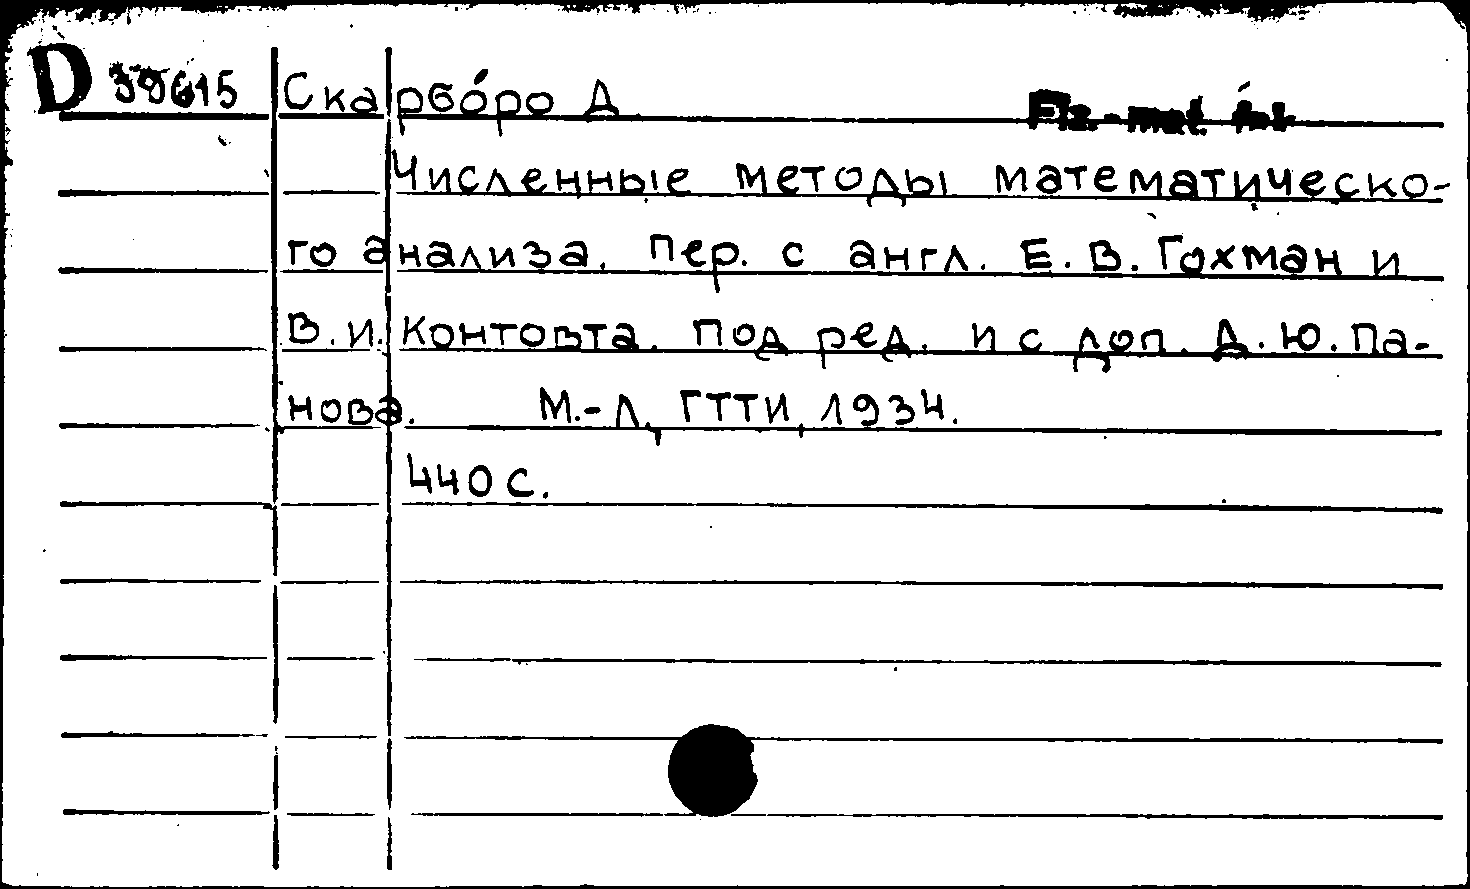 D 39615 Скарбо́ро Д
Fiz.-mat. fak.
Численные методы математическо-
го анализа. Пер. с англ. Е. В. Гохман и
В. И. Контовта. Под ред. и с доп. Д. Ю. Па-
нова. М.-Л., ГТТИ, 1934.
440 с.